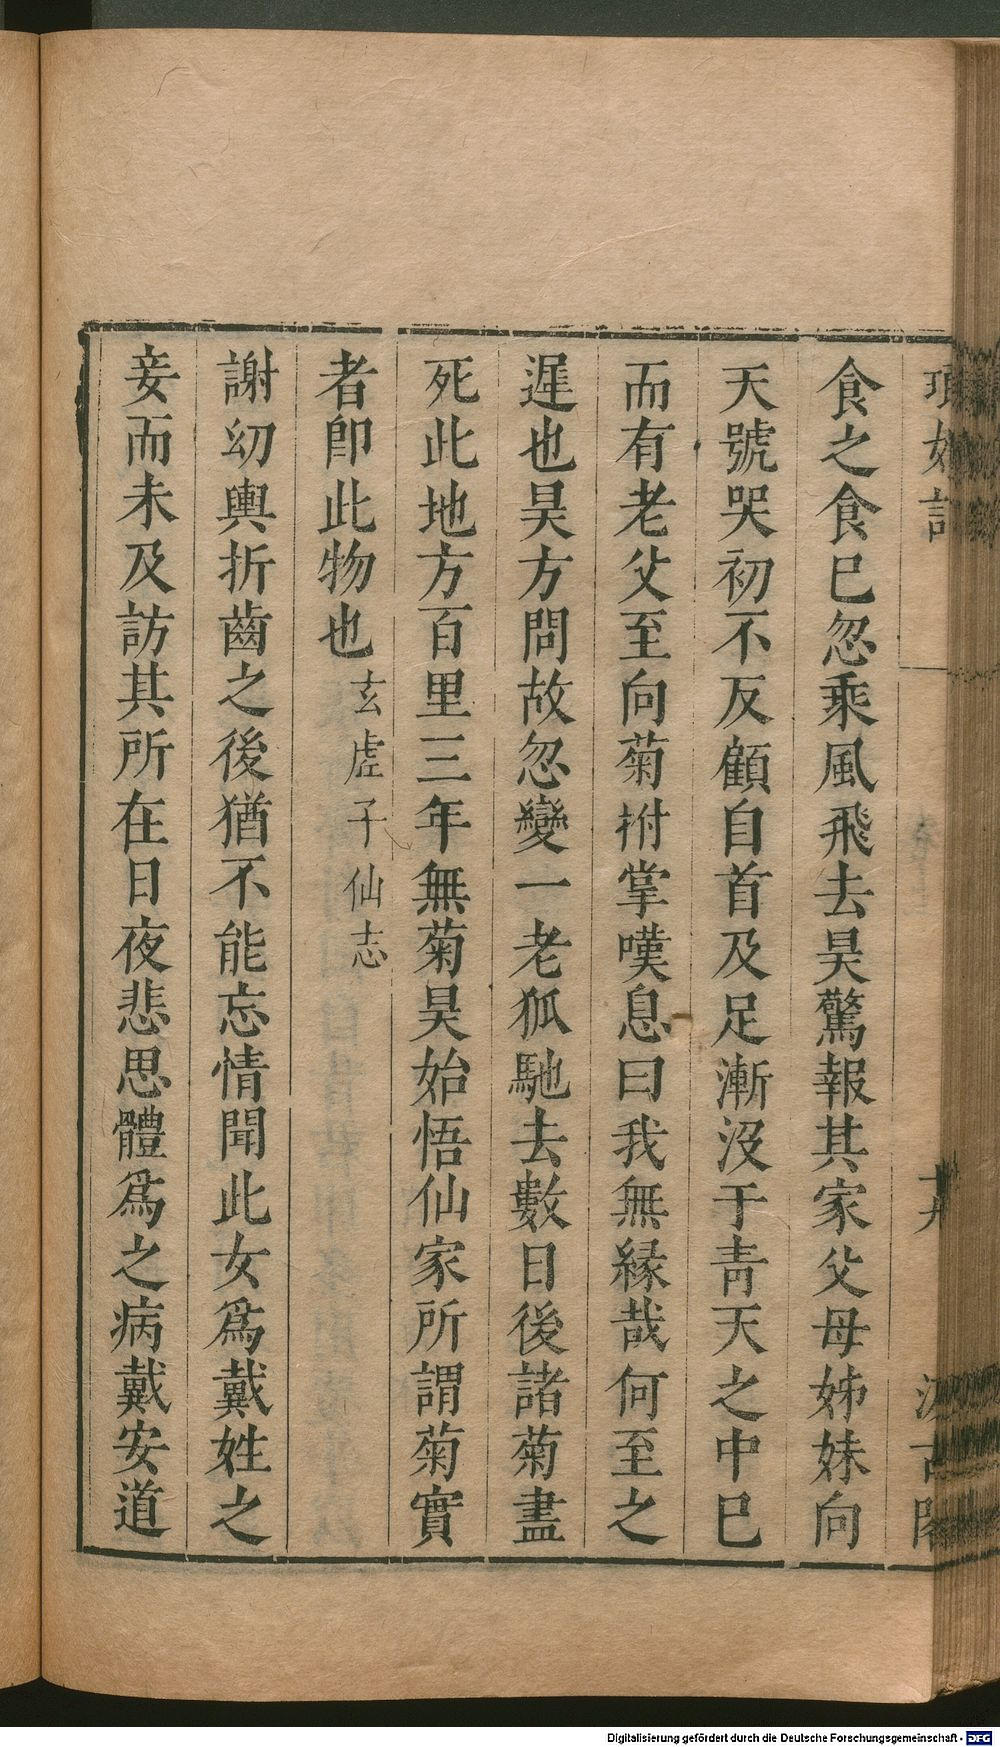 食之食巳忽乘風飛去昊驚報其家父母姊妹向
天號哭初不反顧自首及足漸沒于青天之中巳
而有老父至向菊拊掌嘆息曰我無緣哉何至之
遲也昊方問故忽變一老狐馳去數日後諸菊盡
死此地方百里三年無菊昊始悟仙家所謂菊實
者即此物也玄虛子仙志
謝幼輿折齒之後猶不能忘情聞此女爲戴姓之
妾而未及訪其所在日夜悲思體爲之病戴安道
Digitalisierung gefördert durch die Deutsche Forschungsgemeinschaft - DFG